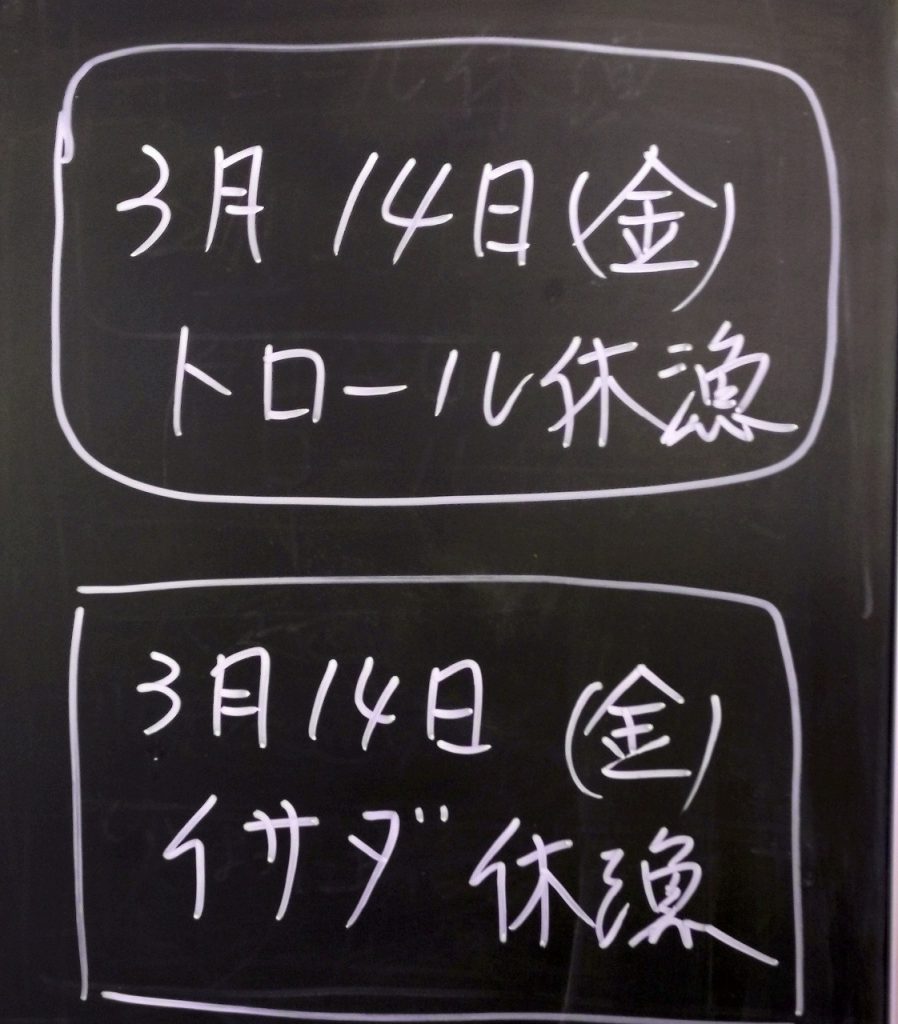 3月14日(金)
トロール休漁
3月14日(金)
イサダ休漁